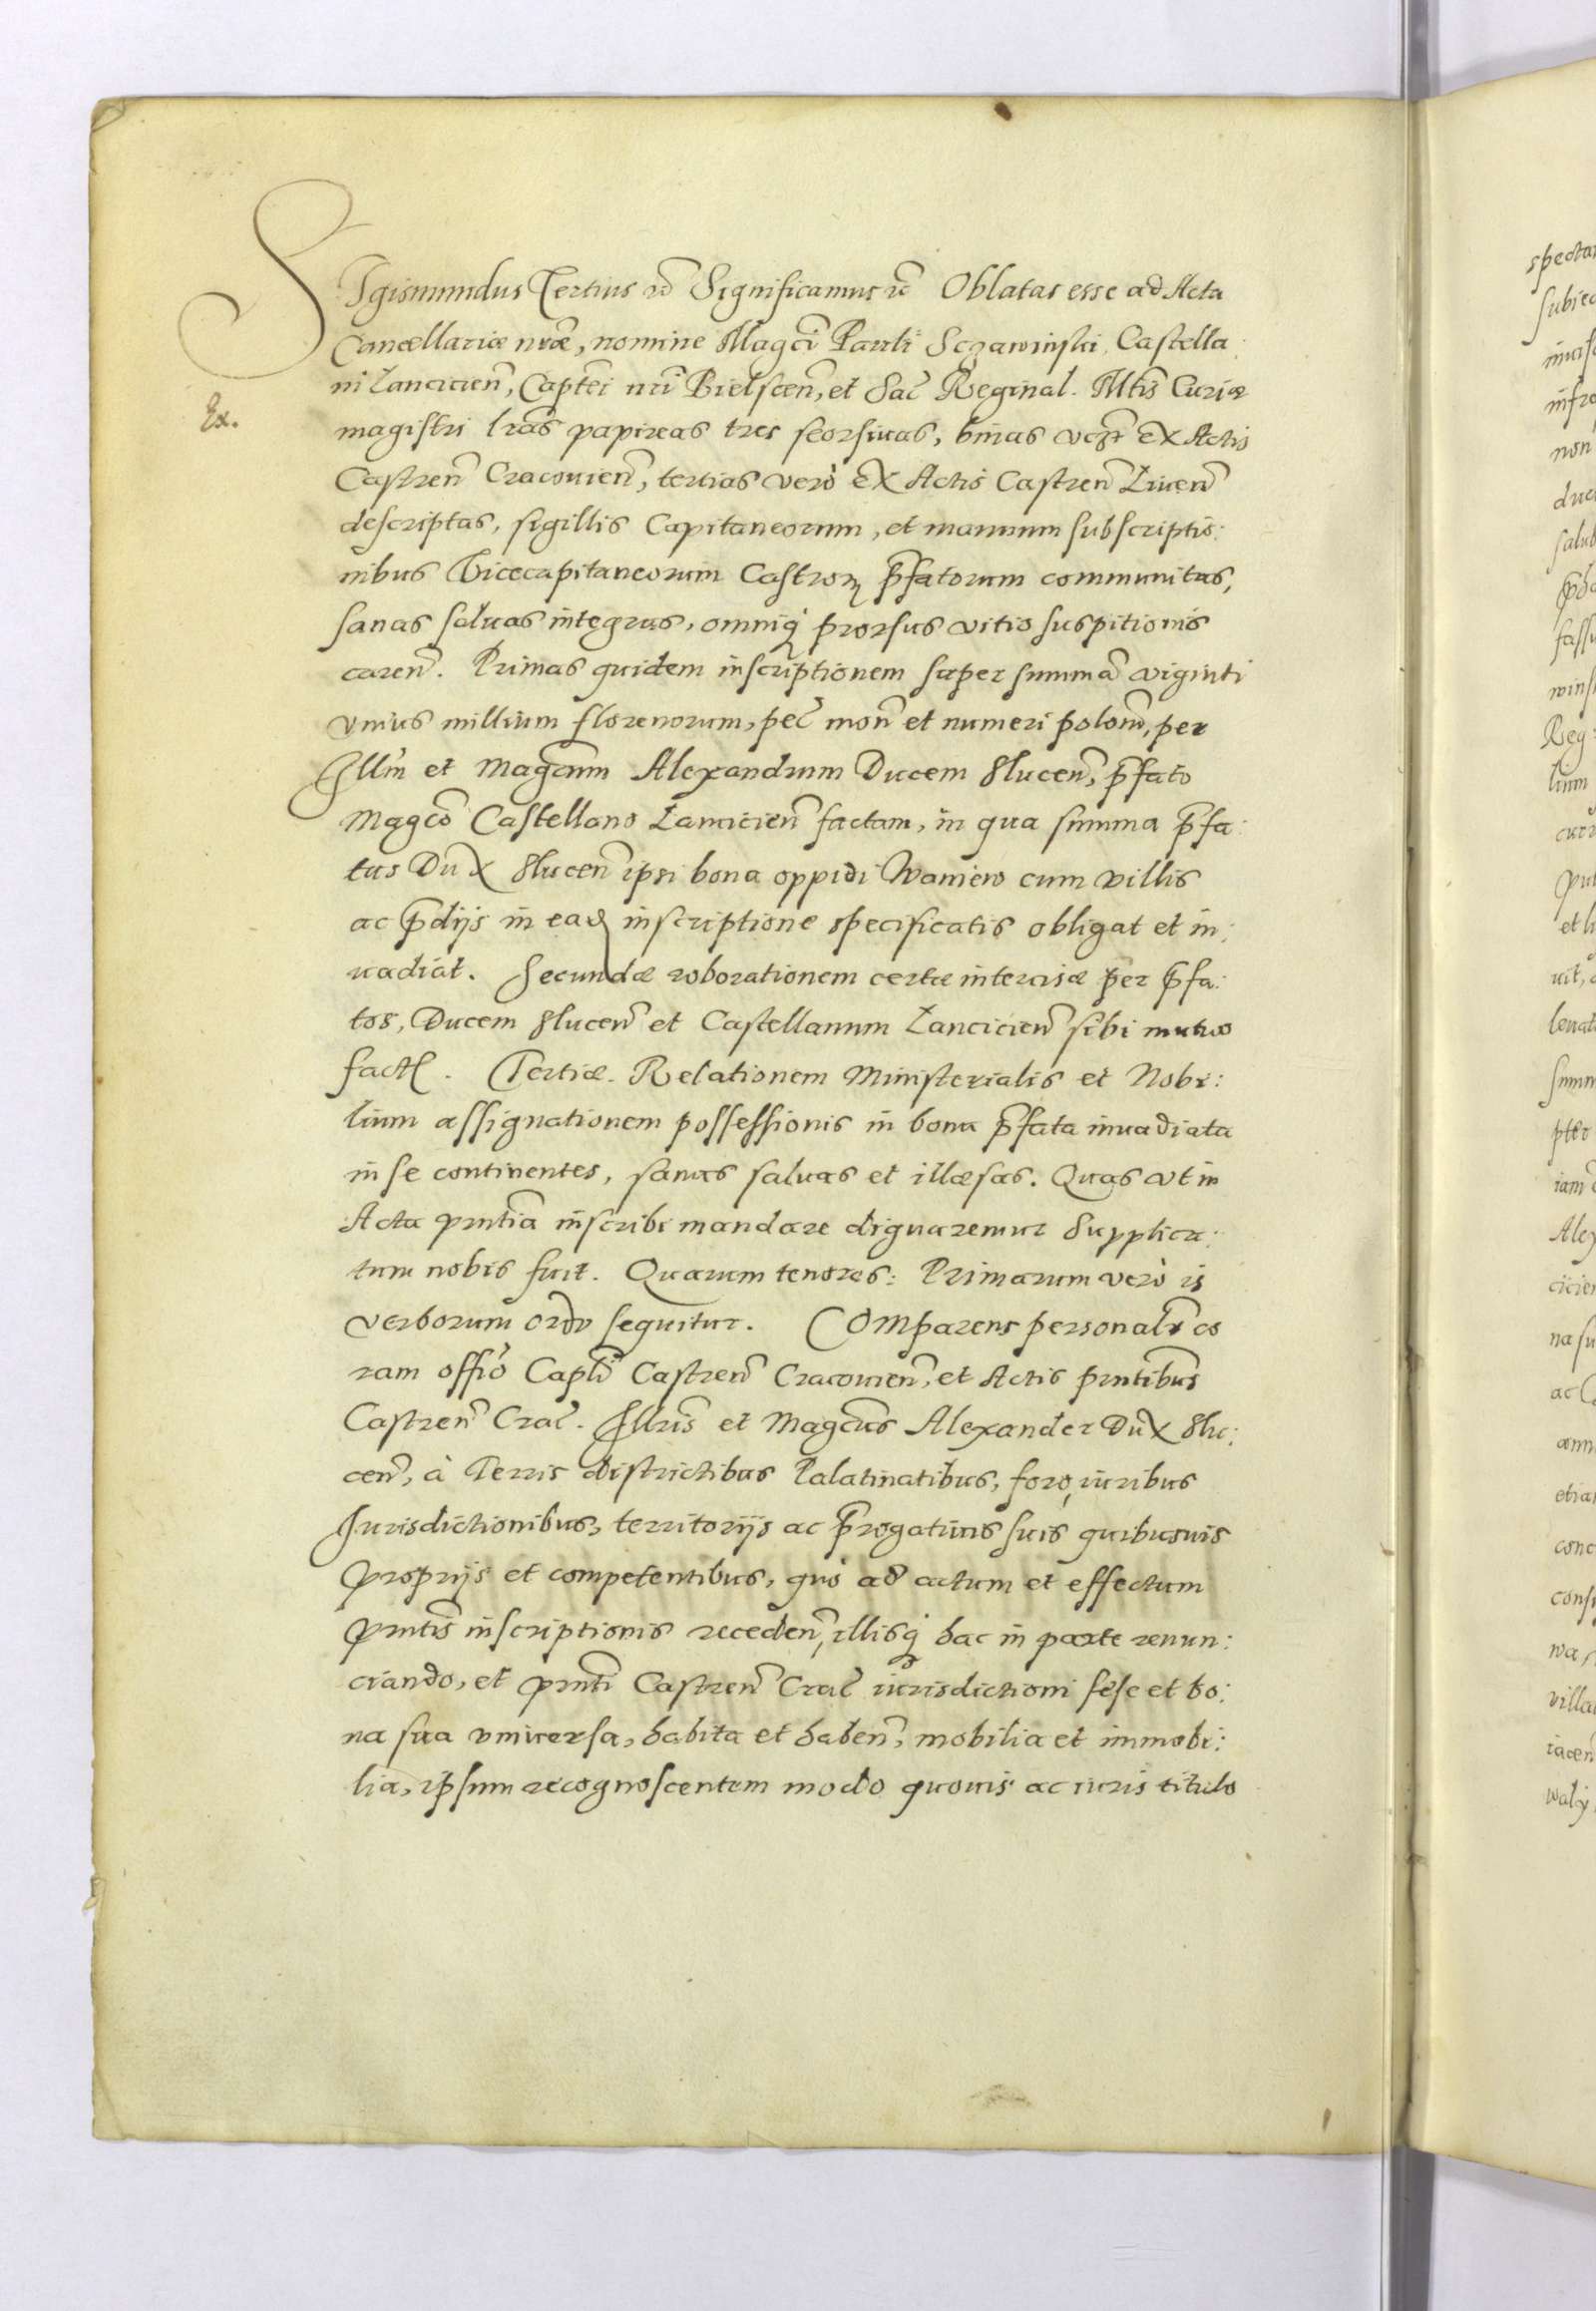 SIgismundus Tertius rc̃ Significamus rc̃ Oblatas esse ad Acta
Cancellariæ nr̃æ, nomine Magc̃i Pauli Sczawinski Castella:
ni Lancicien̄, Capt̃ei nr̃i Bielscen̄, et Sac̃ Reginal. Mt̃is Curiæ
Ex.
magistri lr̃as papireas tres seorsiuas, binas vcz̃t ex Actis
Castren̄ Cracouien̄, tertias verò ex Actis Castren̄ Liuen̄
descriptas, sigillis Capitaneorum, et manuum subscriptio:
nibus Vicecapitaneorum Castroꝝ p̃fatorum communitas,
sanas saluas integras, omniq́ prorsus vitio suspitionis
caren̄. Primas quidem inscriptionem super summã viginti
vnius millium florenorum, pec̃ mon̄ et numeri polon̄, per
Illm̃ et Magc̃um Alexandrum Ducem Slucen̄, p̃fato
Magc̃o Castellano Lancicien̄ factam, in qua summa p̃fa:
tus Dux Slucen̄ ipsi bona oppidi Waniewo cum villis
ac p̃dijs in eaꝺ inscriptione specificatis obligat et in:
uadiat. Secundæ roborationem certæ intercisæ per p̃fa:
tos, Ducem Slucen̄ et Castellanum Lancicien̄ sibi mutuo
factꝭ. Tertiæ. Relationem Ministerialis et Nobi:
lium assignationem possessionis in bona p̃fata inuadiata
in se continentes, sanas saluas et illæsas. Quas vt in
Acta pnt̃ia inscribi mandare dignaremur Supplica:
tum nobis fuit. Quarum tenores: Primarum verò is
verborum ordo sequitur. COmparens personalr̃ co
ram offi̊o Capl̃i Castren̄ Cracouien̄, et Actis pnt̃ibus
Castren̄ Crac̃. Illr̃is et Magc̃us Alexander Dux Slu:
cen̄, à Terris districtibus Palatinatibus, foro, iuribus
Iurisdictionibus, territorijs ac p̃rogatiuis suis quibusuis
proprijs et competentibus, quò ad actum et effectum
pnt̃is inscriptionis receden̄, illisq́ hac in parte renun:
ciando, et pnt̃i Castren̄ Crac̃ iurisdictioni sese et bo:
na sua vniuersa, habita et haben̄, mobilia et immobi:
lia, ipsum recognoscentem modo quouis ac iuris titulo